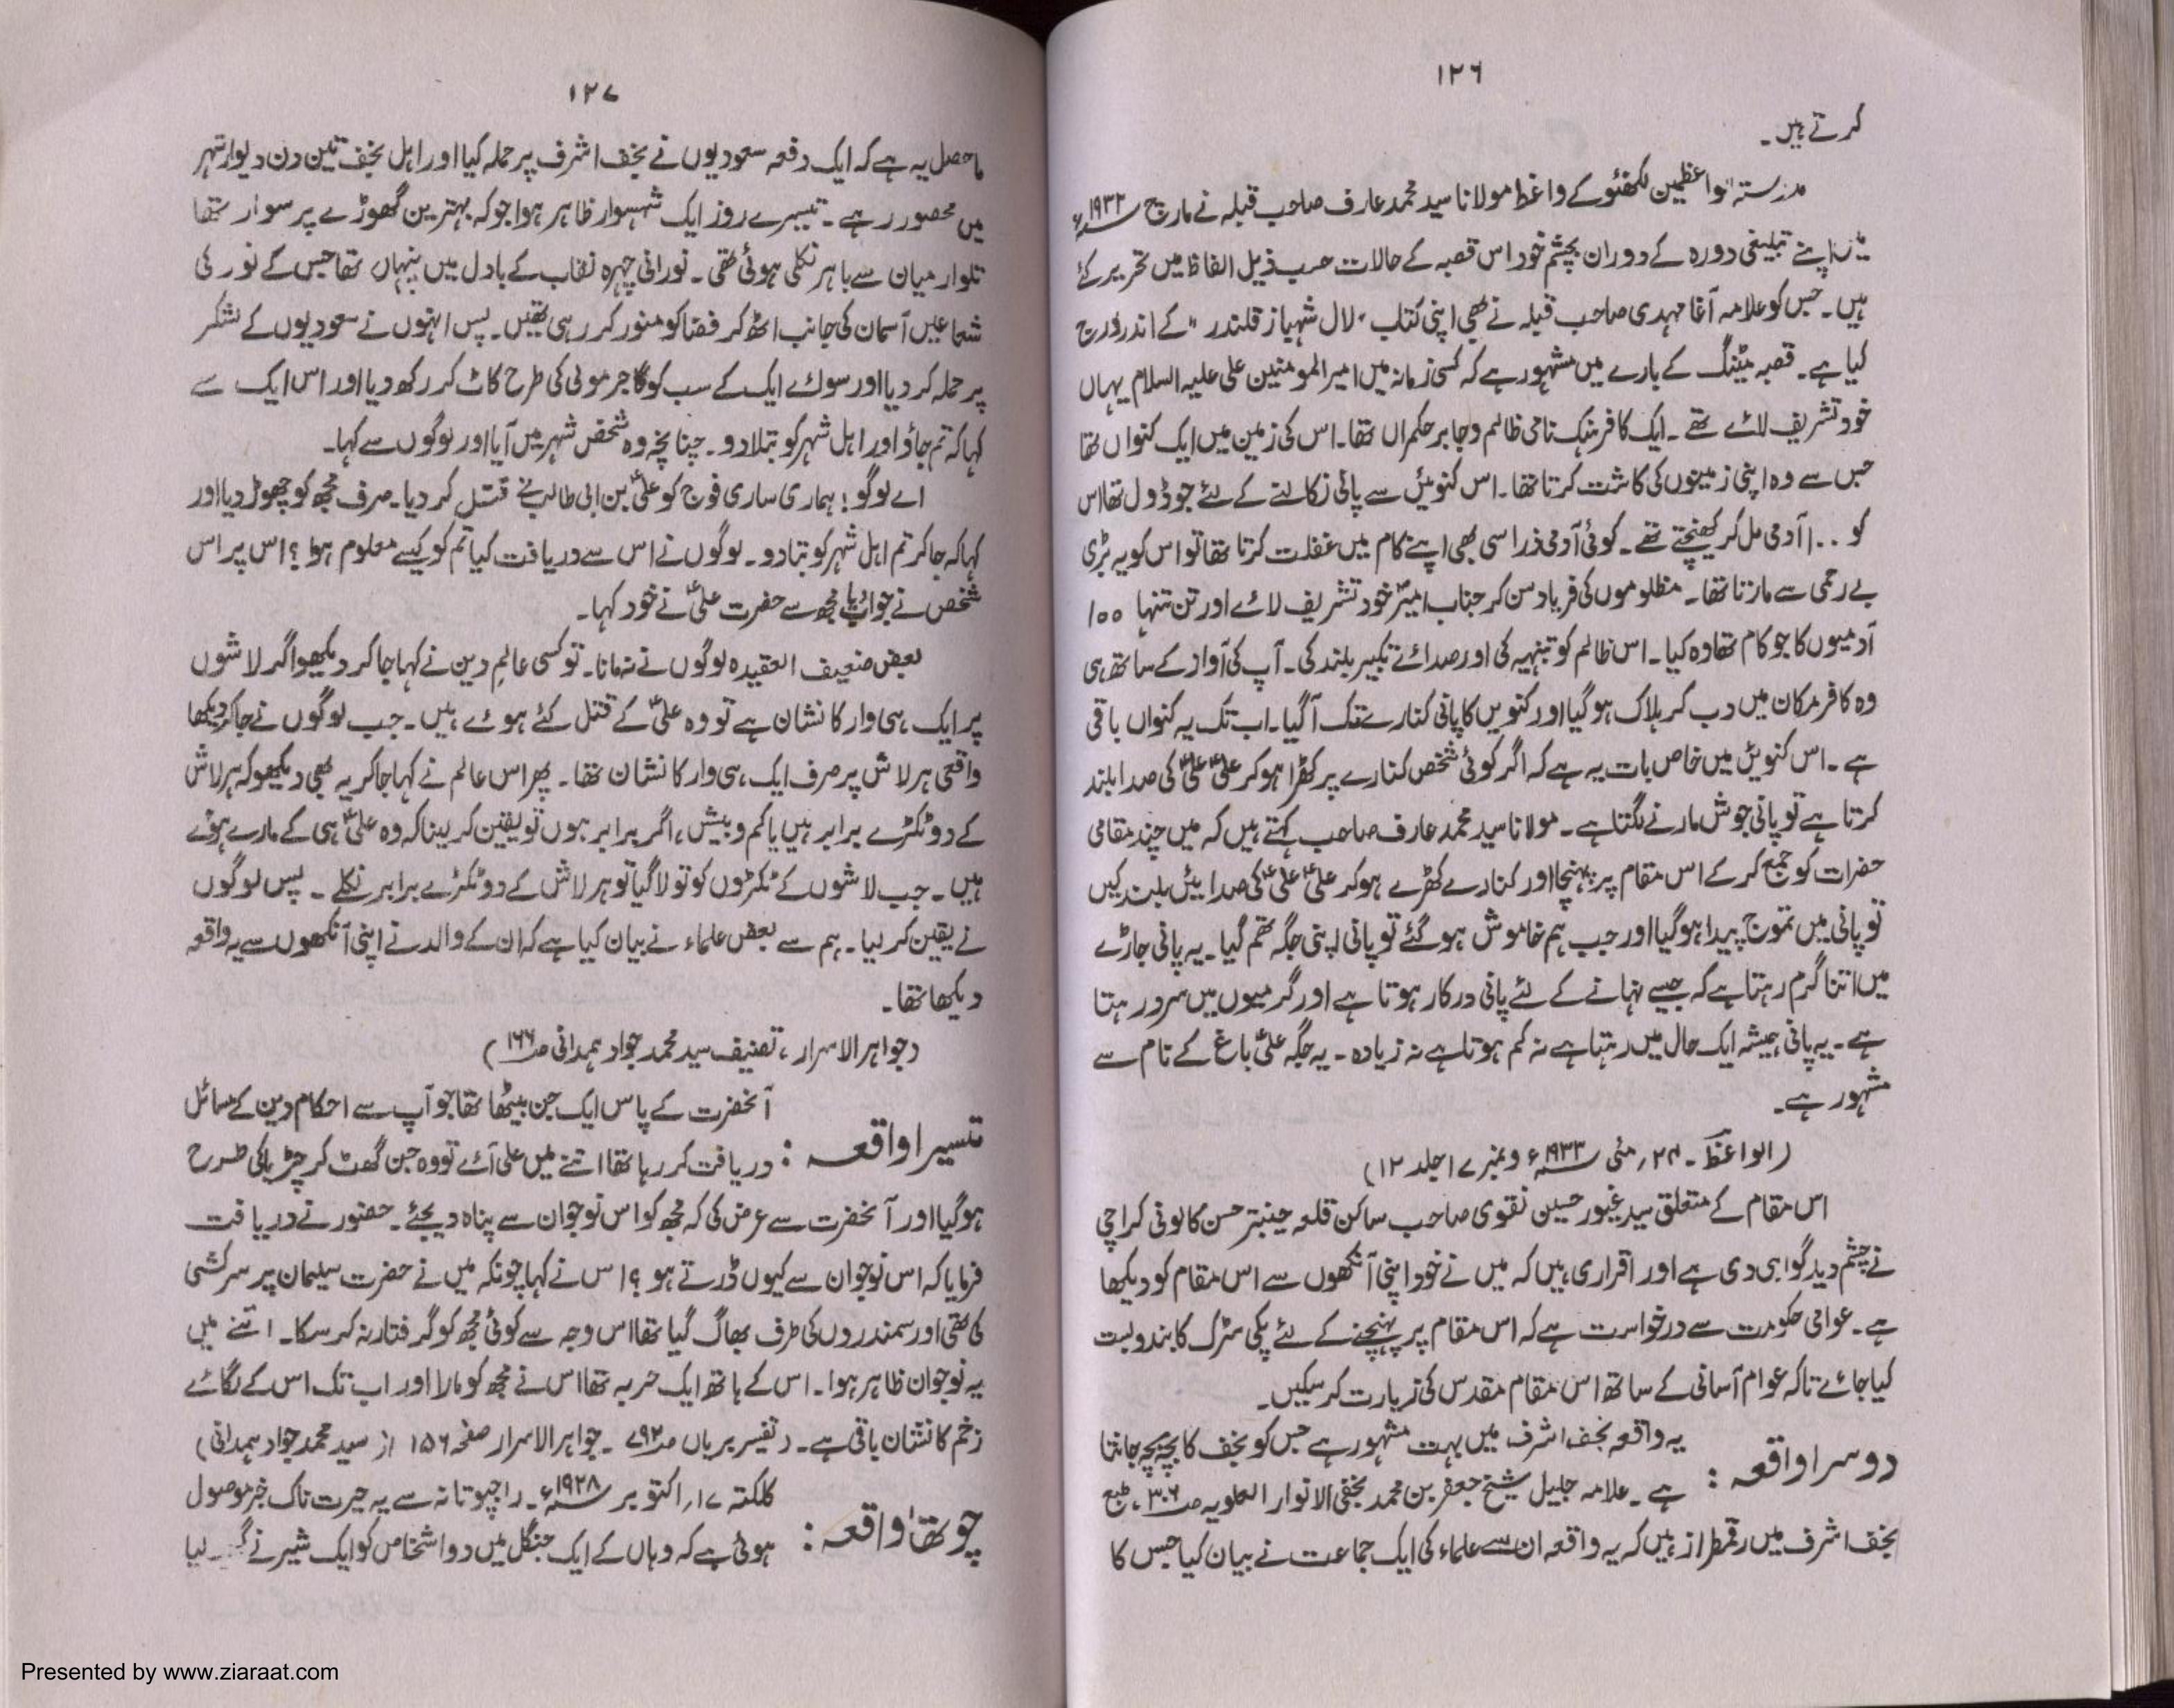 ۱۲۶
کرتے ہیں۔
مدرستہ الواعظین لکھنئو کے واعظ مولانا سید محمد عارف صاحب قبلہ نے مارچ ۱۹۳۲ء
اپنے تبلیغی دورہ کے دوران بچشم خود اس قصبہ کے حالات حسب ذیل الفاظ میں تحریر کئے
ہیں۔ جس کو علامہ آغا مہدی صاحب قبلہ نے بھی اپنی کتاب "لال شہباز قلندر" کے اندر درج
کیا ہے۔ قصبہ مٹینگ کے بارے میں مشہور ہے کہ کسی زمانہ میں امیر المومنین علی علیہ السلام یہاں
خود تشریف لائے تھے۔ ایک کافر ہنک نامی ظالم و جابر حکمراں تھا۔ اس کی زمین میں ایک کنواں تھا
جس سے وہ اپنی زمینوں کی کاشت کرتا تھا۔ اس کنوئیں سے پانی نکالنے کے لئے جو ڈول تھا اس
کو ۱۰۰ آدمی مل کر کھینچتے تھے۔ کوئی آدمی ذرا سی بھی اپنے کام میں غفلت کرتا تھا تو اس کو یہ بڑی
بے رحمی سے مارتا تھا۔ مظلوموں کی فریاد سن کر جناب امیرؑ خود تشریف لائے اور تن تنہا ۱۰۰
آدمیوں کا جو کام تھا وہ کیا۔ اس ظالم کو تنبہیہ کی اور صدائے تکبیر بلند کی۔ آپ کی آواز کے ساتھ ہی
وہ کافر مکان میں دب کر ہلاک ہو گیا اور کنویں کا پانی کنارے تک آ گیا۔ اب تک یہ کنواں باقی
ہے۔ اس کنویں میں خاص بات یہ ہے کہ اگر کوئی شخص کنارے پر کھڑا ہو کر علیؑ علیؑ کی صدا بلند
کرتا ہے تو پانی جوش مارنے لگتا ہے۔ مولانا سید محمد عارف صاحب کہتے ہیں کہ میں چند مقامی
حضرات کو جمع کر کے اس مقام پر پہنچا اور کنارے کھڑے ہو کر علیؑ علیؑ کی صدائیں بلند کیں
تو پانی میں تموج پیدا ہو گیا اور جب ہم خاموش ہو گئے تو پانی اپنی جگہ تھم گیا۔ یہ پانی جاڑے
میں اتنا گرم رہتا ہے کہ جیسے نہانے کے لئے پانی درکار ہوتا ہے اور گرمیوں میں سرد رہتا
ہے۔ یہ پانی ہمیشہ ایک حال میں رہتا ہے نہ کم ہوتا ہے نہ زیادہ۔ یہ جگہ علیؑ باغ کے نام سے
مشہور ہے۔
(الواعظ۔ ۲۴، مئی ۱۹۳۳ء و نمبر ۱۷ جلد ۱۲)
اس مقام کے متعلق سید غیور حسین نقوی صاحب ساکن قلعہ جینبتر حسن کالونی کراچی
نے چشم دید گواہی دی ہے اور اقراری ہیں کہ میں نے خود اپنی آنکھوں سے اس مقام کو دیکھا
ہے۔ عوامی حکومت سے درخواست ہے کہ اس مقام پر پہنچنے کے لئے پکی سڑک کا بندوبست
کیا جائے تاکہ عوام آسانی کے ساتھ اس مقام مقدس کی زیارت کر سکیں۔
دوسرا واقعہ: یہ واقعہ نجف اشرف میں بہت مشہور ہے جس کو نجف کا بچہ بچہ جانتا
ہے۔ علامہ جلیل شیخ جعفر بن محمد نجفی الانوار العلویہ ص ۳۰۶، طبع
نجف اشرف میں رقمطراز ہیں کہ یہ واقعہ ان سے علماء کی ایک جماعت نے بیان کیا جس کا
۱۲۷
ماحصل یہ ہے کہ ایک دفعہ سعودیوں نے نجف اشرف پر حملہ کیا اور اہل نجف تین دن دیوار شہر
میں محصور رہے۔ تیسرے روز ایک شہسوار ظاہر ہوا جو کہ بہترین گھوڑے پر سوار تھا
تلوار میان سے باہر نکلی ہوئی تھی۔ نورانی چہرہ نقاب کے بادل میں پنہاں تھا جس کے نور کی
شعاعیں آسمان کی جانب اٹھ کر فضا کو منور کر رہی تھیں۔ پس انہوں نے سعودیوں کے لشکر
پر حملہ کر دیا اور سوائے ایک کے سب کو گاجر مولی کی طرح کاٹ کر رکھ دیا اور اس ایک سے
کہا کہ تم جاؤ اور اہل شہر کو بتلا دو۔ چنانچہ وہ شخص شہر میں آیا اور لوگوں سے کہا۔
اے لوگو! ہماری ساری فوج کو علیؑ بن ابی طالب نے قتل کر دیا۔ صرف مجھ کو چھوڑ دیا اور
کہا کہ جا کر تم اہل شہر کو بتا دو۔ لوگوں نے اس سے دریافت کیا تم کو کیسے معلوم ہوا؟ اس پر اس
شخص نے جواب دیا مجھ سے حضرت علیؑ نے خود کہا۔
بعض ضعیف العقیدہ لوگوں نے نہ مانا۔ تو کسی عالم دین نے کہا جا کر دیکھو اگر لاشوں
پر ایک ہی وار کا نشان ہے تو وہ علیؑ کے قتل کئے ہوئے ہیں۔ جب لوگوں نے جا کر دیکھا
واقعی ہر لاش پر صرف ایک ہی وار کا نشان تھا۔ پھر اس عالم نے کہا جا کر یہ بھی دیکھو کہ ہر لاش
کے دو ٹکڑے برابر ہیں یا کم و بیش، اگر برابر ہوں تو یقین کر لینا کہ وہ علیؑ ہی کے مارے ہوئے
ہیں۔ جب لاشوں کے ٹکڑوں کو تولا گیا تو ہر لاش کے دو ٹکڑے برابر نکلے۔ پس لوگوں
نے یقین کر لیا۔ ہم سے بعض علماء نے بیان کیا ہے کہ ان کے والد نے اپنی آنکھوں سے یہ واقعہ
دیکھا تھا۔
(جواہر الاسرار، تصنیف سید محمد جواد ہمدانی ص ۱۶۶)
تیسرا واقعہ: آنحضرت کے پاس ایک جن بیٹھا تھا جو آپ سے احکام دین کے مسائل
دریافت کر رہا تھا اتنے میں علی آئے تو وہ جن گھٹ کر چڑیا کی طرح
ہو گیا اور آنحضرت سے عرض کی کہ مجھ کو اس نوجوان سے پناہ دیجئے۔ حضور نے دریافت
فرمایا کہ اس نوجوان سے کیوں ڈرتے ہو؟ اس نے کہا چونکہ میں نے حضرت سلیمان پر سرکشی
کی تھی اور سمندروں کی طرف بھاگ گیا تھا اس وجہ سے کوئی مجھ کو گرفتار نہ کر سکا۔ اتنے میں
یہ نوجوان ظاہر ہوا۔ اس کے ہاتھ ایک حربہ تھا اس نے مجھ کو مارا اور اب تک اس کے لگائے
زخم کا نشان باقی ہے۔ (تفسیر برہان ص ۷۹۲۔ جواہر الاسرار صفحہ ۱۵۶ از سید محمد جواد ہمدانی)
چوتھا واقعہ: کلکتہ ۱۷، اکتوبر ۱۹۲۸ء۔ راجپوتانہ سے یہ حیرت ناک خبر موصول
ہوئی ہے کہ وہاں کے ایک جنگل میں دو اشخاص کو ایک شیر نے لیا
Presented by www.ziaraat.com